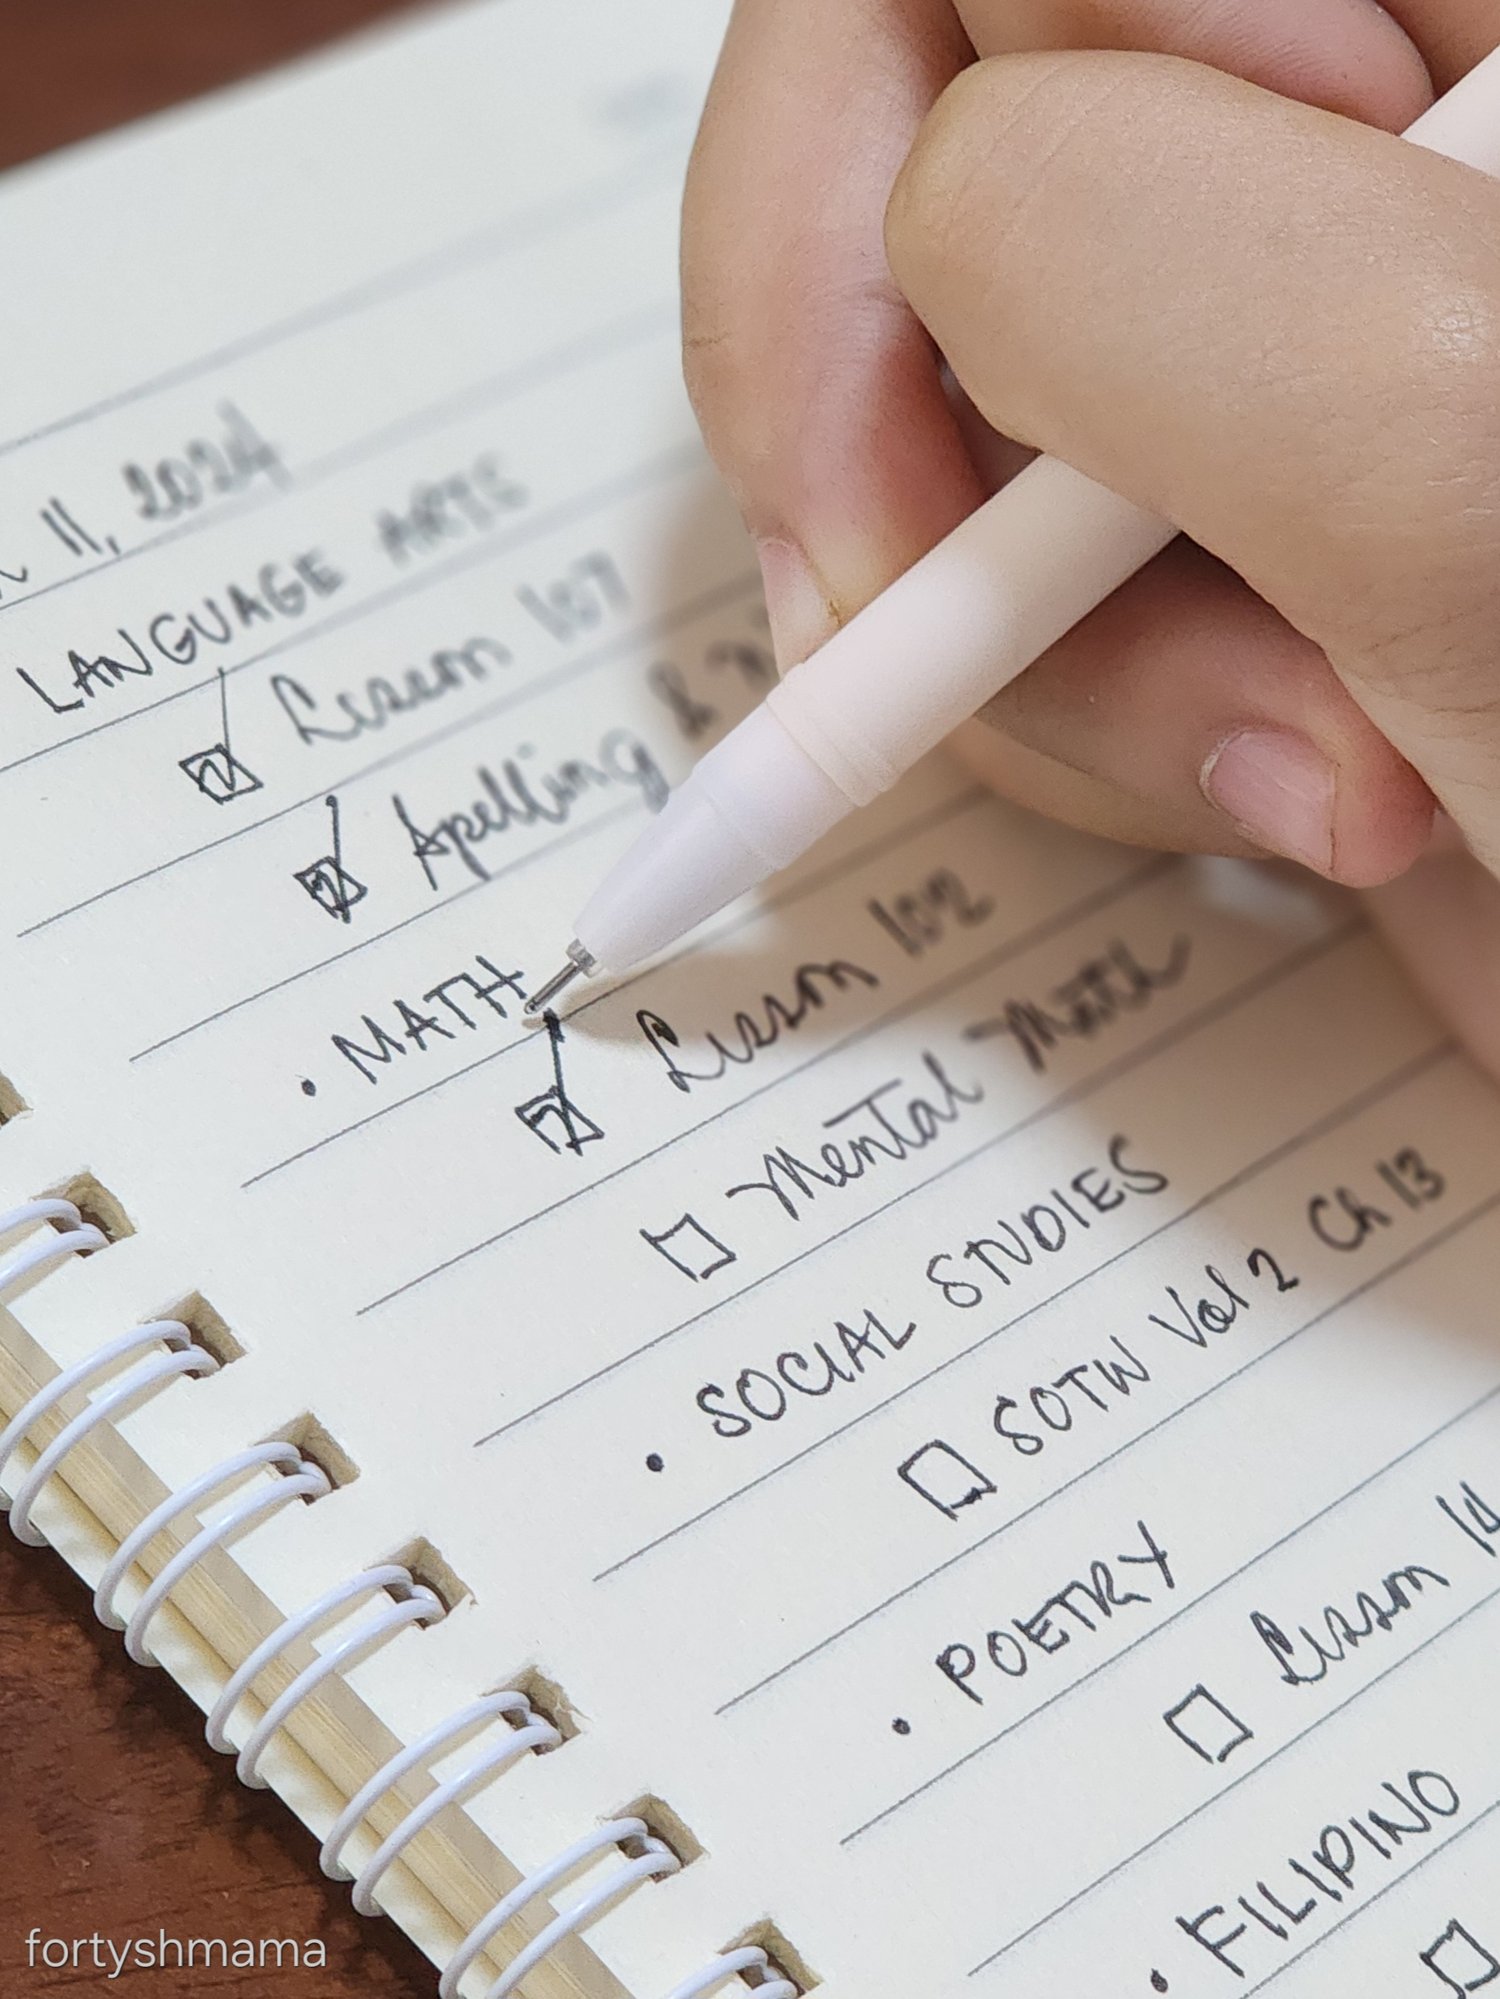 11, 2024
LANGUAGE ARTS
☑ Lesson 107
☑ Spelling &
• MATH
☑ Lesson 102
☐ Mental Math
• SOCIAL STUDIES
☐ SOTW Vol 2 Ch 13
• POETRY
☐ Lesson
• FILIPINO
fortyshmama